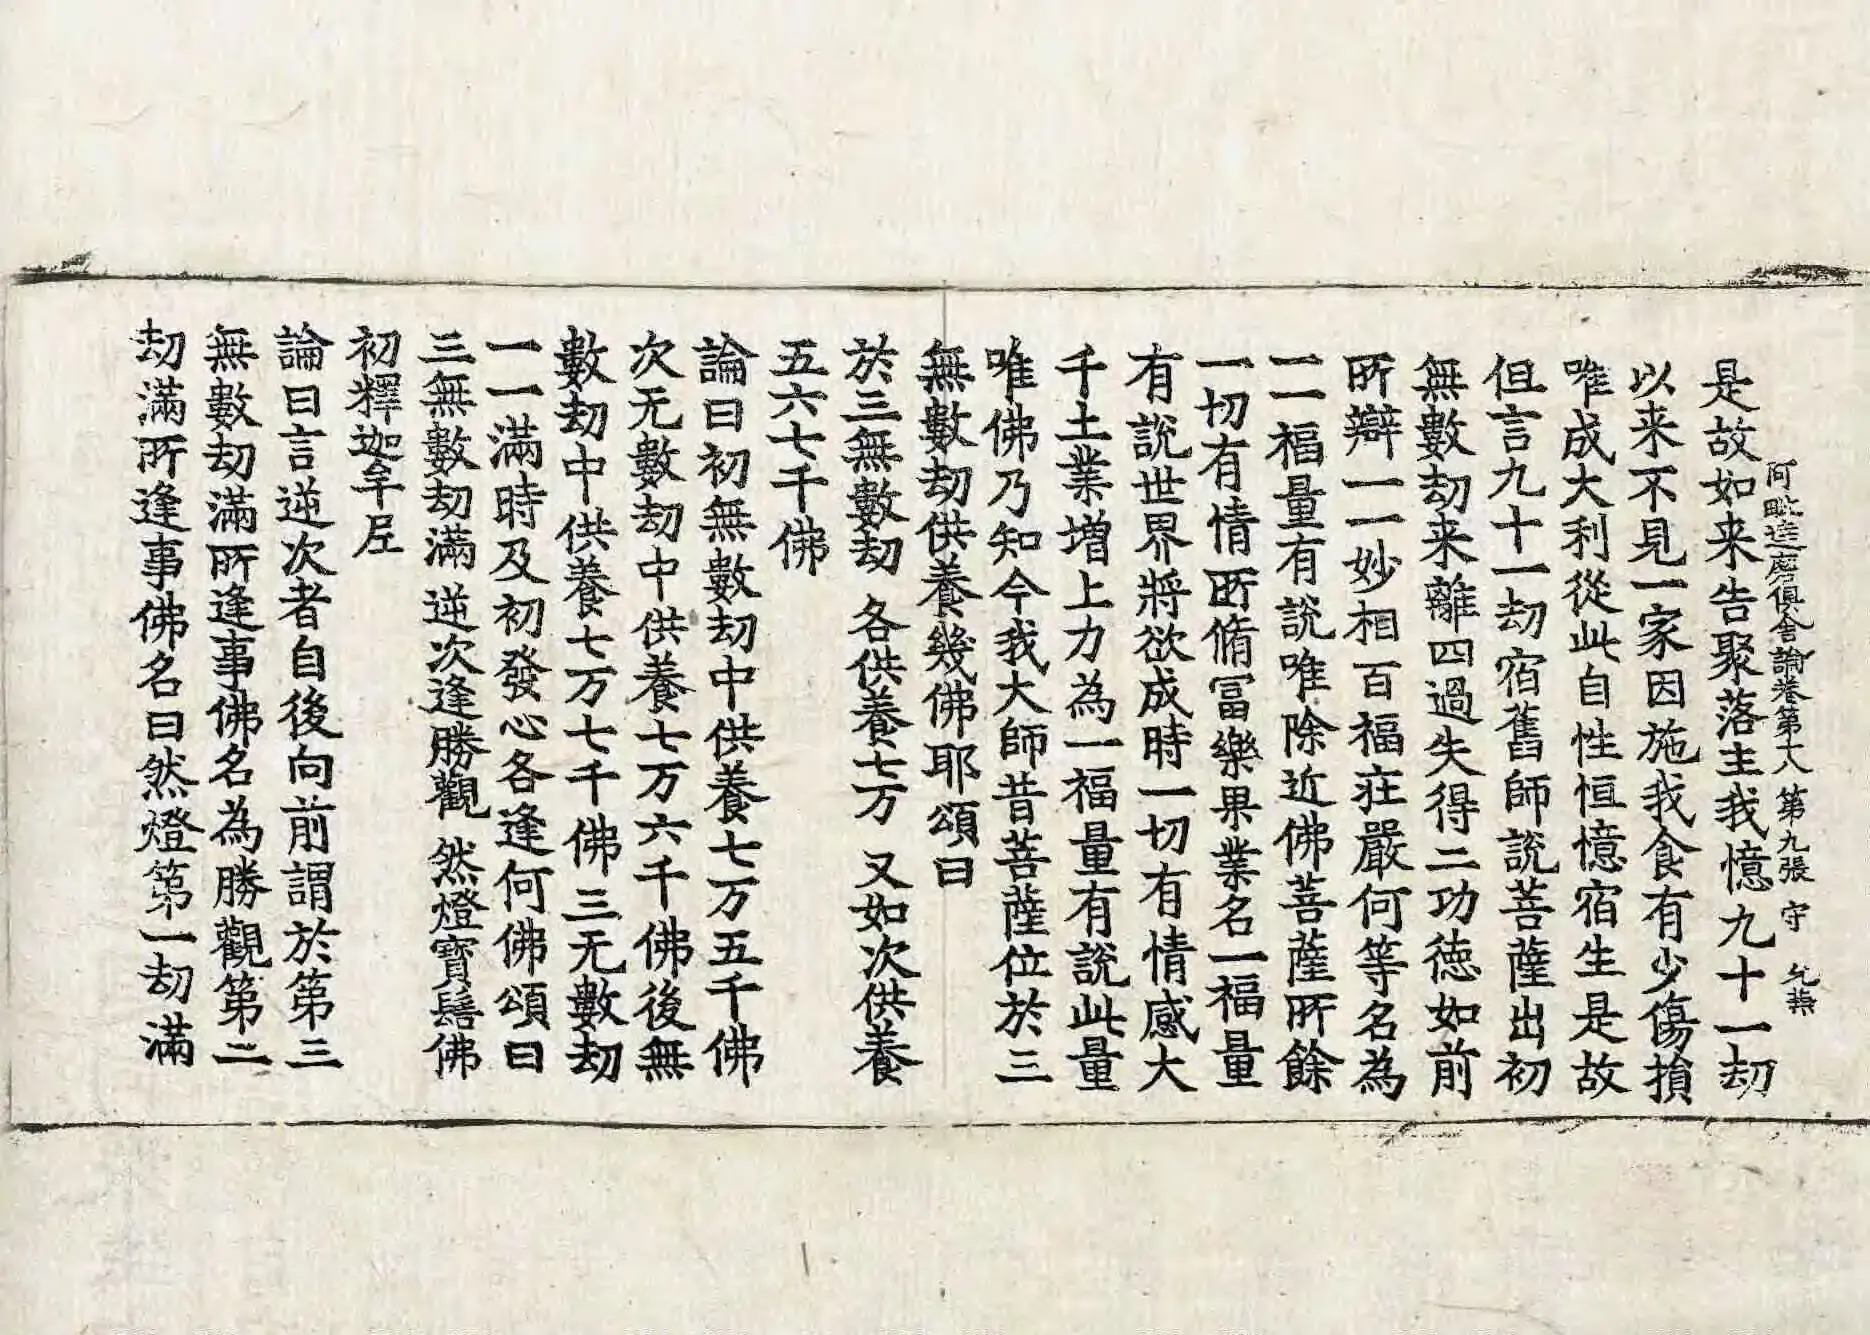 阿毗達磨俱舍論卷第十八 第九張 守
是故如来告聚落主我憶九十一劫
以来不見一家因施我食有少傷損
唯成大利從此自性恒憶宿生是故
但言九十一劫宿舊師說菩薩出初
無數劫来離四過失得二功德如前
所辯一一妙相百福莊嚴何等名為
一一福量有說唯除近佛菩薩所餘
一切有情所脩冨樂果業名一福量
有說世界將欲成時一切有情感大
千土業增上力為一福量有說此量
唯佛乃知今我大師昔菩薩位於三
無數劫供養幾佛耶頌曰
於三無數劫 各供養七万 又如次供養
五六七千佛
論曰初無數劫中供養七万五千佛
次无數劫中供養七万六千佛後無
數劫中供養七万七千佛三无數劫
一一滿時及初發心各逢何佛頌曰
三無數劫滿 逆次逢勝觀 然燈寶髻佛
初釋迦牟尼
論曰言逆次者自後向前謂於第三
無數劫滿所逢事佛名為勝觀第二
劫滿所逢事佛名曰然燈第一劫滿